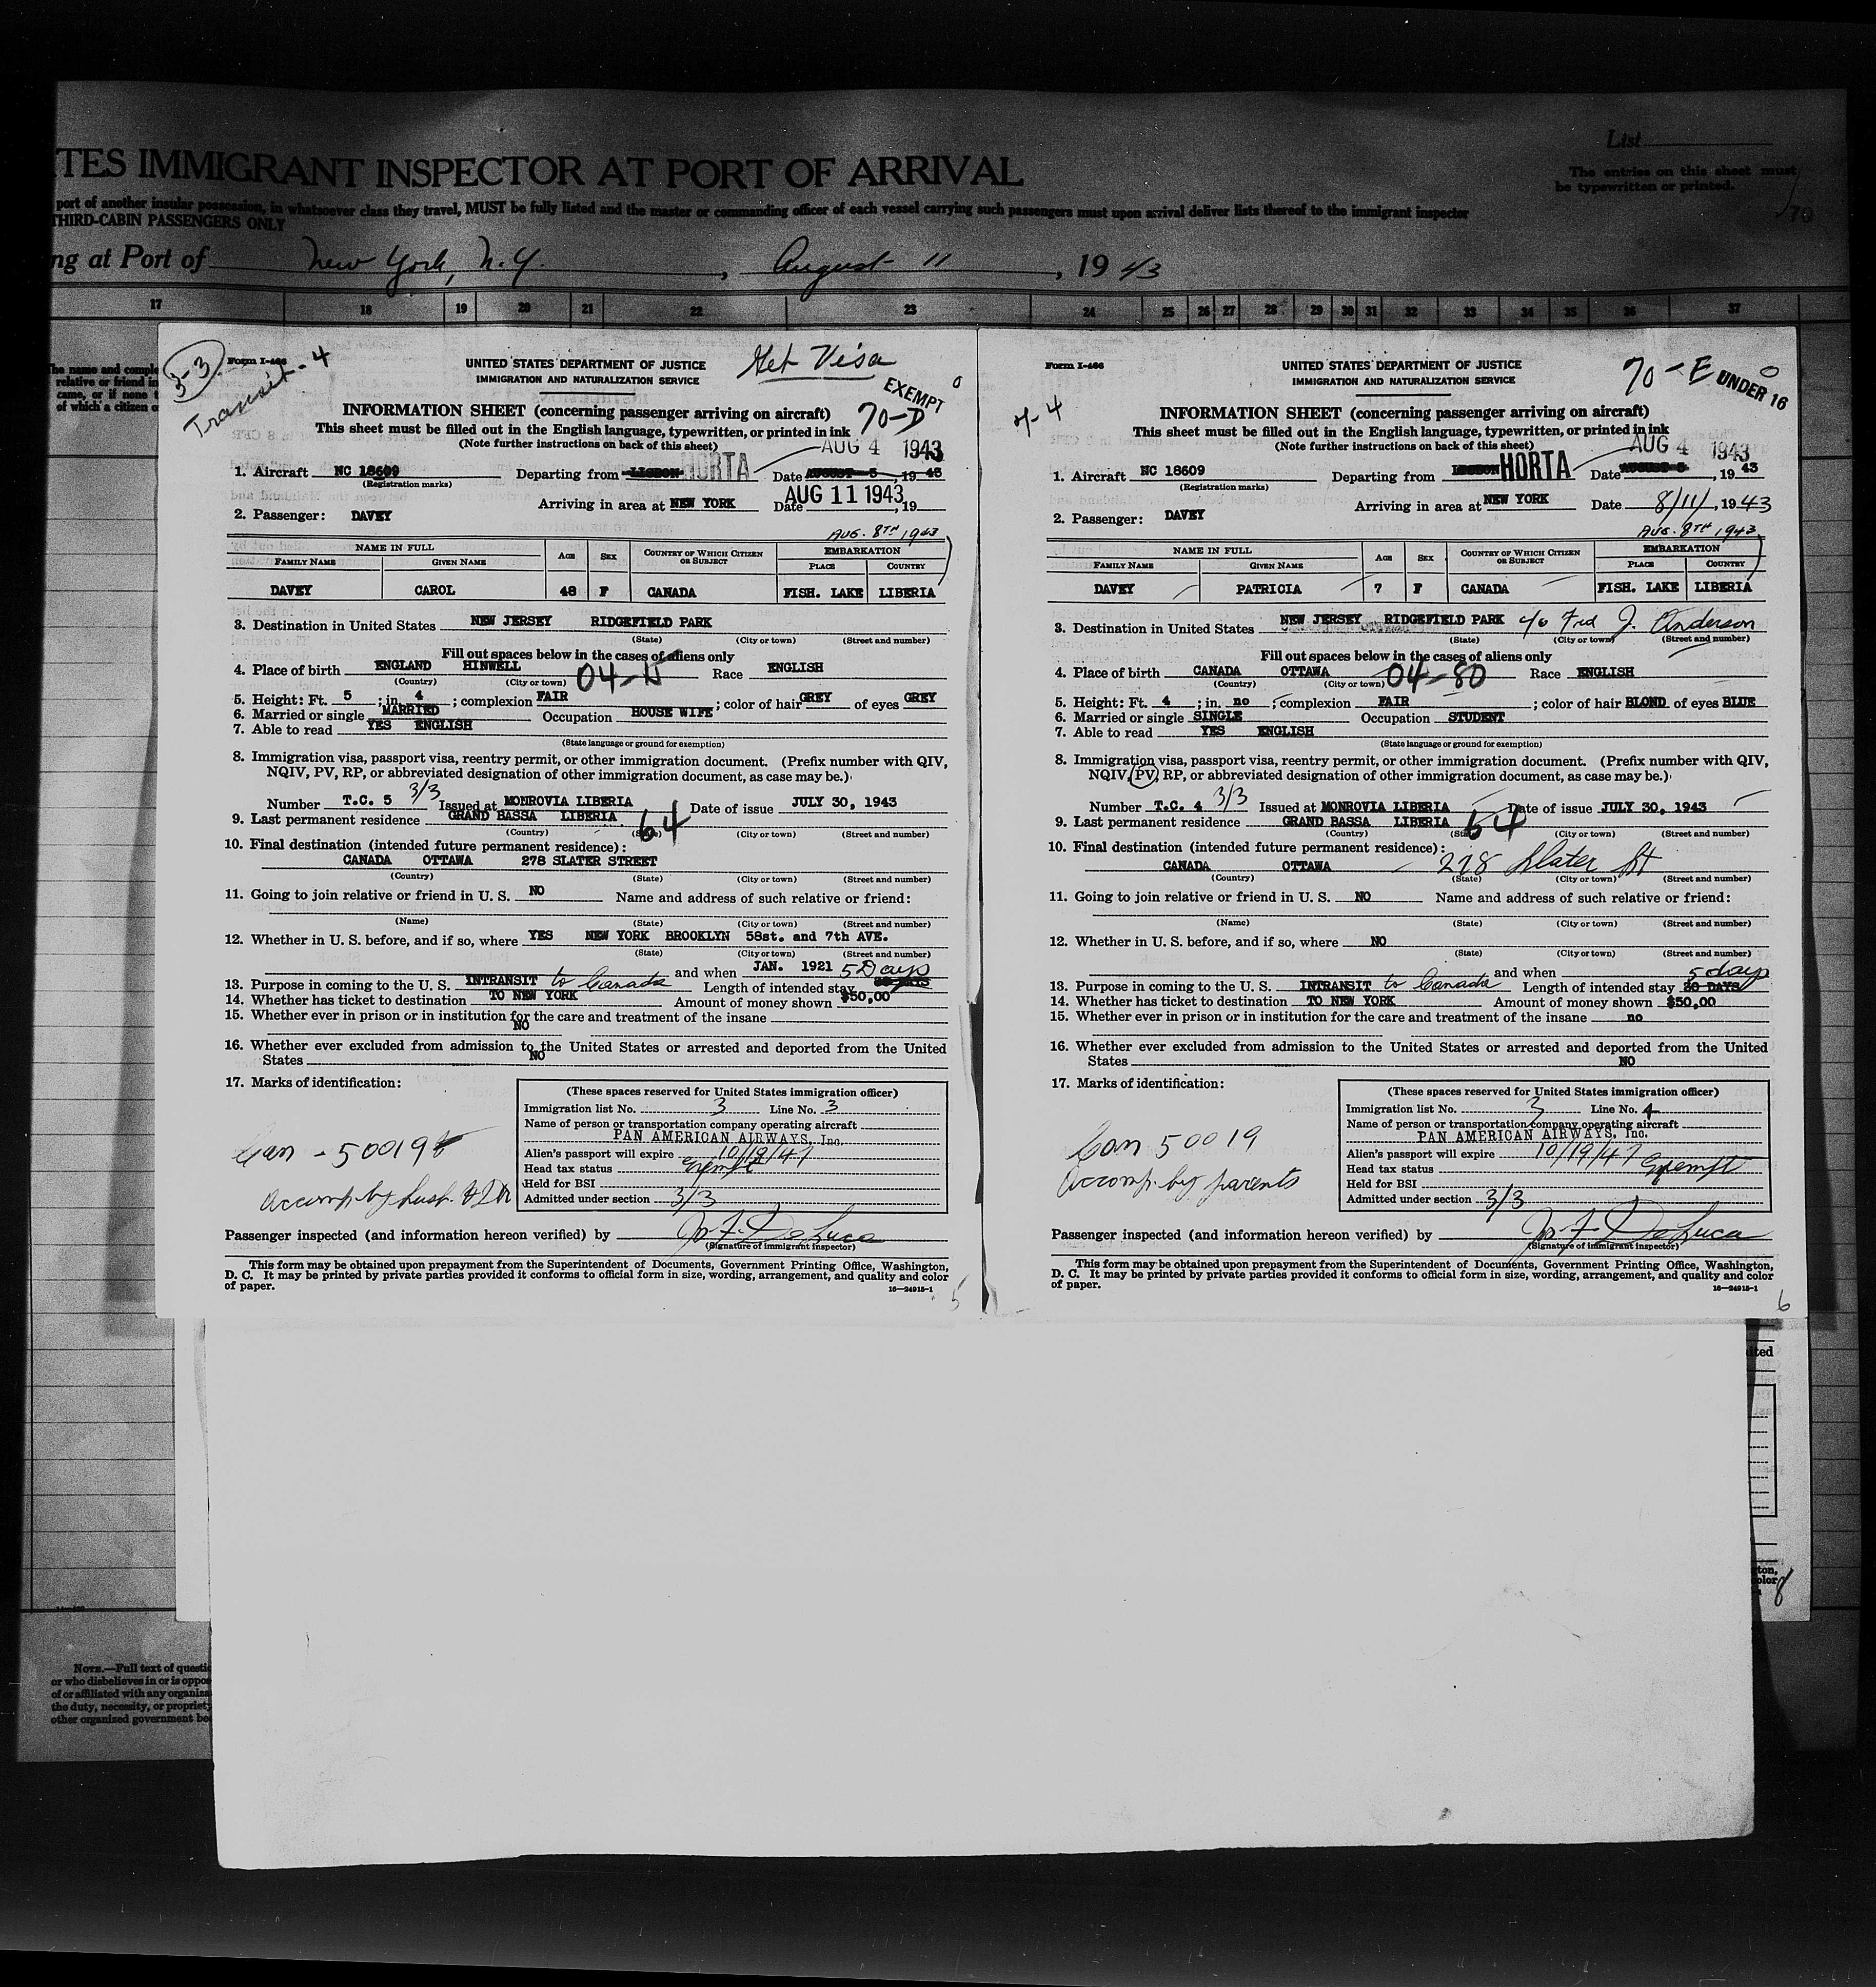 TES IMMIGRANT INSPECTOR AT PORT OF ARRIVAL
List
The entries on this sheet must
be typewritten or printed.
port of another insular possession, in whatsoever class they travel, MUST be fully listed and the master or commanding officer of each vessel carrying such passengers must upon arrival deliver lists thereof to the immigrant inspector
THIRD-CABIN PASSENGERS ONLY
70
ng at Port of New York, N.Y., August 11, 1943
17 18 19 20 21 22 23 24 25 26 27 28 29 30 31 32 33 34 35 36 37
he name and comple
relative or friend in
came, or if none t
of which a citizen o
3-3
Transit-4
Form I-466
UNITED STATES DEPARTMENT OF JUSTICE
IMMIGRATION AND NATURALIZATION SERVICE
Get Visa
EXEMPT
0
INFORMATION SHEET (concerning passenger arriving on aircraft)
70-D
This sheet must be filled out in the English language, typewritten, or printed in ink
(Note further instructions on back of this sheet)
AUG 4 1943
1. Aircraft NC 18609 Departing from LISBON HORTA Date AUGUST 5, 1943
(Registration marks)
AUG 11 1943
Arriving in area at NEW YORK Date , 19
2. Passenger: DAVEY
AUG. 8TH 1943
NAME IN FULL AGE SEX COUNTRY OF WHICH CITIZEN OR SUBJECT EMBARKATION
FAMILY NAME GIVEN NAME PLACE COUNTRY
DAVEY CAROL 48 F CANADA FISH. LAKE LIBERIA
3. Destination in United States NEW JERSEY RIDGEFIELD PARK
(State) (City or town) (Street and number)
Fill out spaces below in the cases of aliens only
4. Place of birth ENGLAND HINWELL 04-N Race ENGLISH
(Country) (City or town)
5. Height: Ft. 5; in. 4; complexion FAIR; color of hair GREY of eyes GREY
6. Married or single MARRIED Occupation HOUSE WIFE
7. Able to read YES ENGLISH
(State language or ground for exemption)
8. Immigration visa, passport visa, reentry permit, or other immigration document. (Prefix number with QIV,
NQIV, PV, RP, or abbreviated designation of other immigration document, as case may be.)
Number T.C. 5 3/3 Issued at MONROVIA LIBERIA Date of issue JULY 30, 1943
9. Last permanent residence GRAND BASSA LIBERIA 64
(Country) (State) (City or town) (Street and number)
10. Final destination (intended future permanent residence):
CANADA OTTAWA 278 SLATER STREET
(Country) (State) (City or town) (Street and number)
11. Going to join relative or friend in U. S. NO Name and address of such relative or friend:
(Name) (State) (City or town) (Street and number)
12. Whether in U. S. before, and if so, where YES NEW YORK BROOKLYN 58st. and 7th AVE.
(State) (City or town) (Street and number)
and when JAN. 1921
13. Purpose in coming to the U. S. INTRANSIT to Canada Length of intended stay 5 Days
14. Whether has ticket to destination TO NEW YORK Amount of money shown $50,00
15. Whether ever in prison or in institution for the care and treatment of the insane
NO
16. Whether ever excluded from admission to the United States or arrested and deported from the United
States NO
17. Marks of identification:
(These spaces reserved for United States immigration officer)
Immigration list No. 3 Line No. 3
Name of person or transportation company operating aircraft
PAN AMERICAN AIRWAYS, Inc.
Can - 50019
Alien's passport will expire 10/19/47
Head tax status Exempt
Held for BSI
Accomp. by husb. & Dtr
Admitted under section 3/3
Passenger inspected (and information hereon verified) by Jos. F. DeLuca
(Signature of immigrant inspector)
This form may be obtained upon prepayment from the Superintendent of Documents, Government Printing Office, Washington,
D. C. It may be printed by private parties provided it conforms to official form in size, wording, arrangement, and quality and color
of paper.
16—24915-1
5
Form I-466
UNITED STATES DEPARTMENT OF JUSTICE
IMMIGRATION AND NATURALIZATION SERVICE
70-E
0
UNDER 16
INFORMATION SHEET (concerning passenger arriving on aircraft)
This sheet must be filled out in the English language, typewritten, or printed in ink
(Note further instructions on back of this sheet)
AUG 4 1943
1. Aircraft NC 18609 Departing from LISBON HORTA Date AUGUST 5, 1943
(Registration marks)
Arriving in area at NEW YORK Date 8/11/, 1943
2. Passenger: DAVEY
AUG. 8TH 1943
NAME IN FULL AGE SEX COUNTRY OF WHICH CITIZEN OR SUBJECT EMBARKATION
FAMILY NAME GIVEN NAME PLACE COUNTRY
DAVEY PATRICIA 7 F CANADA FISH. LAKE LIBERIA
3. Destination in United States NEW JERSEY RIDGEFIELD PARK c/o Frd J. Anderson
(State) (City or town) (Street and number)
Fill out spaces below in the cases of aliens only
4. Place of birth CANADA OTTAWA 04-80 Race ENGLISH
(Country) (City or town)
5. Height: Ft. 4; in. no; complexion FAIR; color of hair BLOND of eyes BLUE
6. Married or single SINGLE Occupation STUDENT
7. Able to read YES ENGLISH
(State language or ground for exemption)
8. Immigration visa, passport visa, reentry permit, or other immigration document. (Prefix number with QIV,
NQIV, PV, RP, or abbreviated designation of other immigration document, as case may be.)
Number T.C. 4 3/3 Issued at MONROVIA LIBERIA Date of issue JULY 30, 1943
9. Last permanent residence GRAND BASSA LIBERIA 64
(Country) (State) (City or town) (Street and number)
10. Final destination (intended future permanent residence):
CANADA OTTAWA 278 Slater St
(Country) (State) (City or town) (Street and number)
11. Going to join relative or friend in U. S. NO Name and address of such relative or friend:
(Name) (State) (City or town) (Street and number)
12. Whether in U. S. before, and if so, where NO
(State) (City or town) (Street and number)
and when
13. Purpose in coming to the U. S. INTRANSIT to Canada Length of intended stay 5 days
14. Whether has ticket to destination TO NEW YORK Amount of money shown $50,00
15. Whether ever in prison or in institution for the care and treatment of the insane no
16. Whether ever excluded from admission to the United States or arrested and deported from the United
States NO
17. Marks of identification:
(These spaces reserved for United States immigration officer)
Immigration list No. 3 Line No. 4
Name of person or transportation company operating aircraft
PAN AMERICAN AIRWAYS, Inc.
Can 50019
Alien's passport will expire 10/19/47
Head tax status Exempt
Accomp. by parents
Held for BSI
Admitted under section 3/3
Passenger inspected (and information hereon verified) by Jos. F. DeLuca
(Signature of immigrant inspector)
This form may be obtained upon prepayment from the Superintendent of Documents, Government Printing Office, Washington,
D. C. It may be printed by private parties provided it conforms to official form in size, wording, arrangement, and quality and color
of paper.
16—24915-1
6
ited
ton,
olor
8
NOTE.—Full text of questi
or who disbelieves in or is oppos
of or affiliated with any organiza
the duty, necessity, or propriety
other organized government be